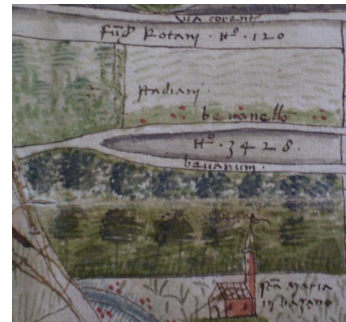 via corent
fūd Rotani · Hº · 120
stadiani ·
bevanello
Hº · 3428 ·
bevanum ·
stā maria
in bazano